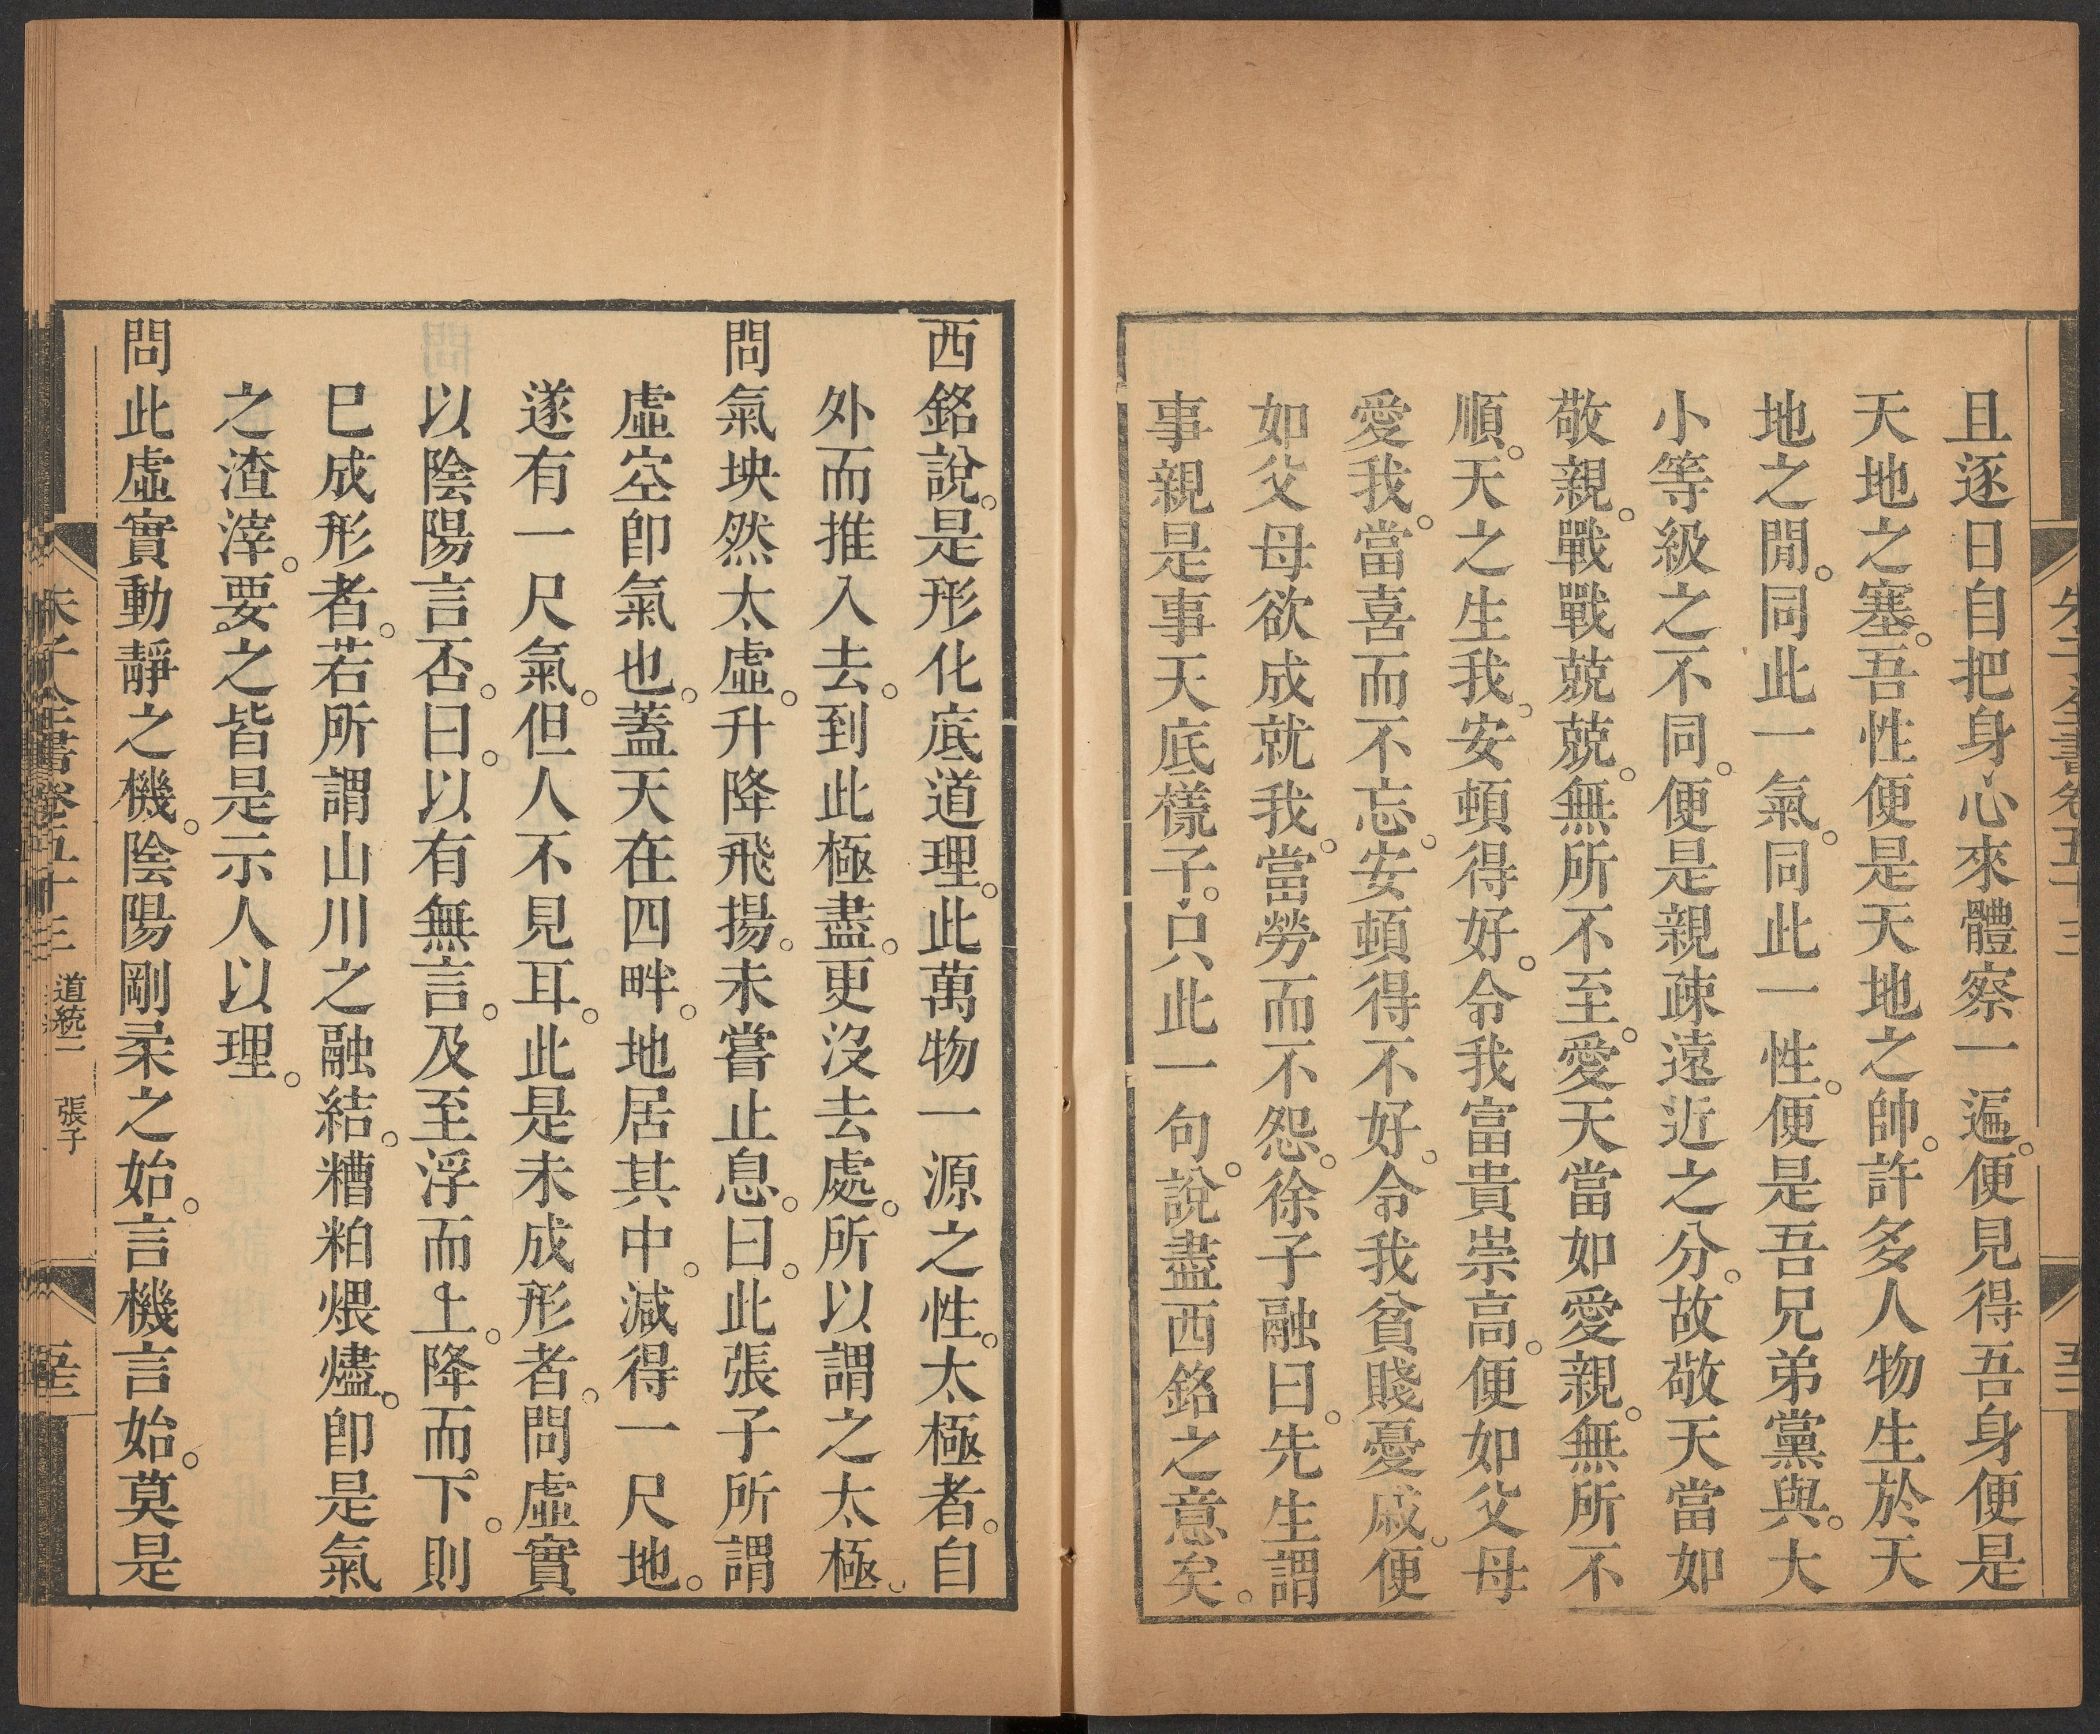 且逐日自把身心來體察一遍。便見得吾身便是
天地之塞。吾性便是天地之帥。許多人物生於天
地之閒。同此一氣。同此一性。便是吾兄弟黨與。大
小等級之不同。便是親疎遠近之分。故敬天當如
敬親。戰戰兢兢。無所不至。愛天當如愛親。無所不
順。天之生我。安頓得好。令我富貴崇高。便如父母
愛我。當喜而不忘。安頓得不好。令我貧賤憂戚。便
如父母欲成就我。當勞而不怨。徐子融曰。先生謂
事親是事天底樣子。只此一句。說盡西銘之意矣。
西銘說。是形化底道理。此萬物一源之性。太極者。自
外而推入去。到此極盡。更沒去處。所以謂之太極。
問氣坱然太虛。升降飛揚。未嘗止息。曰。此張子所謂
虛空卽氣也。蓋天在四畔。地居其中。減得一尺地。
遂有一尺氣。但人不見耳。此是未成形者。問虛實
以陰陽言否。曰。以有無言。及至浮而上。降而下。則
已成形者。若所謂山川之融結。糟粕煨燼。卽是氣
之渣滓。要之皆是示人以理。
問此虛實動靜之機。陰陽剛柔之始。言機言始。莫是
朱子全書卷五十三 道統二 張子